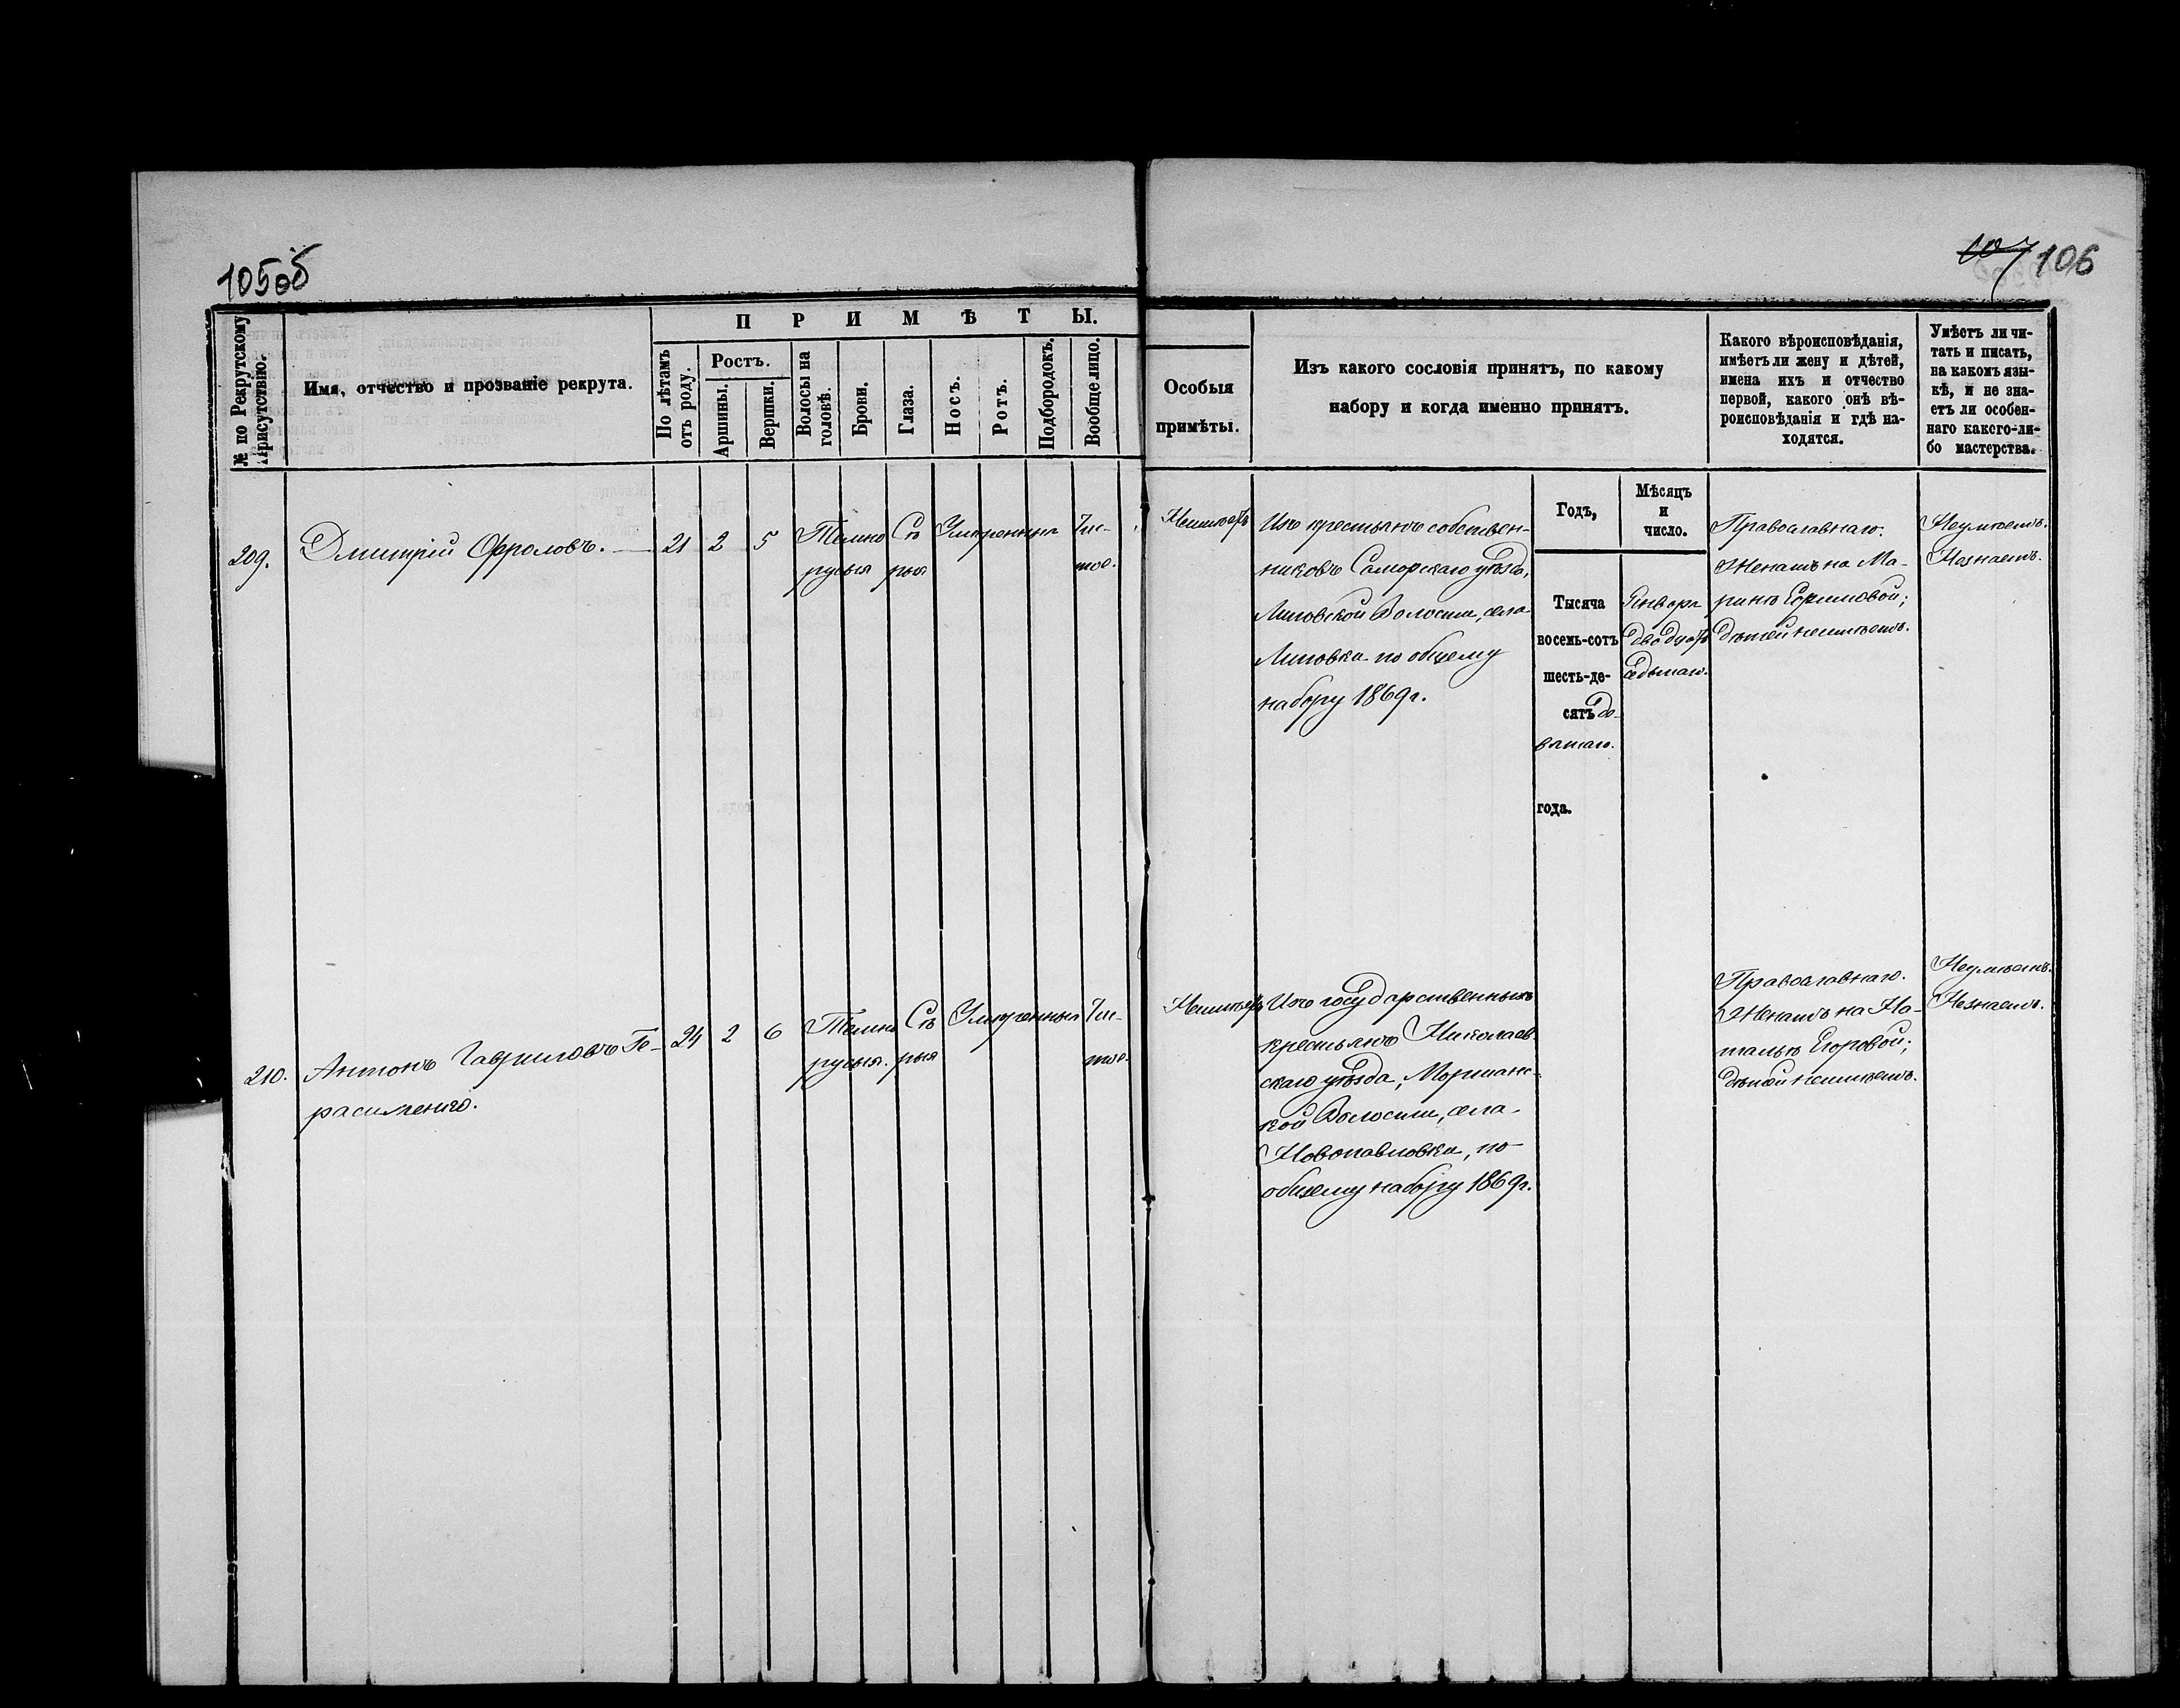 105об
107 106
№ по Рекрутскому Присутствію.
Имя, отчество и прозваніе рекрута.
ПРИМѢТЫ.
По лѣтамъ отъ роду.
Ростъ.
Аршины.
Вершки.
Волосы на головѣ.
Брови.
Глаза.
Носъ.
Ротъ.
Подбородокъ.
Вообще лицо.
Особыя
примѣты.
Изъ какого сословія принятъ, по какому
набору и когда именно принятъ.
Какого вѣроисповѣданія,
имѣетъ ли жену и дѣтей,
имена ихъ и отчество
первой, какого онѣ вѣ-
роисповѣданія и гдѣ на-
ходятся.
Умѣетъ ли чи-
тать и писать,
на какомъ язы-
кѣ, и не зна-
етъ ли особен-
наго какого-ли-
бо мастерства.
209.
Дмитрій Фроловъ.
21 2 5
Темно
русыя
Сѣ
рыя
Умѣренный
Чис-
тое.
Неимѣетъ
Изъ крестьянъ собствен-
никовъ Самарскаго уѣзда,
Липовской Волости, села
Липовки по общему
набору 1869 г.
Годъ,
Тысяча
восемь-сотъ
шесть-де-
сятъ де-
вятаго.
года.
Мѣсяцъ
и
число.
Января
двадцать
седьмаго.
Православнаго.
Женатъ на Ма-
ринѣ Ефимовой;
дѣтей неимѣетъ.
Неумѣетъ.
Незнаетъ.
210.
Антонъ Гавриловъ Ге-
расименко.
24 2 6
Темно
русыя.
Сѣ
рыя
Умѣренный
Чис-
тое.
Неимѣетъ
Изъ государственныхъ
крестьянъ Николаев-
скаго уѣзда, Моршанс-
кой Волости, села
Новопавловки, по
общему набору 1869 г.
Православнаго.
Женатъ на На-
тальѣ Егоровой;
дѣтей неимѣетъ.
Неумѣетъ.
Незнаетъ.